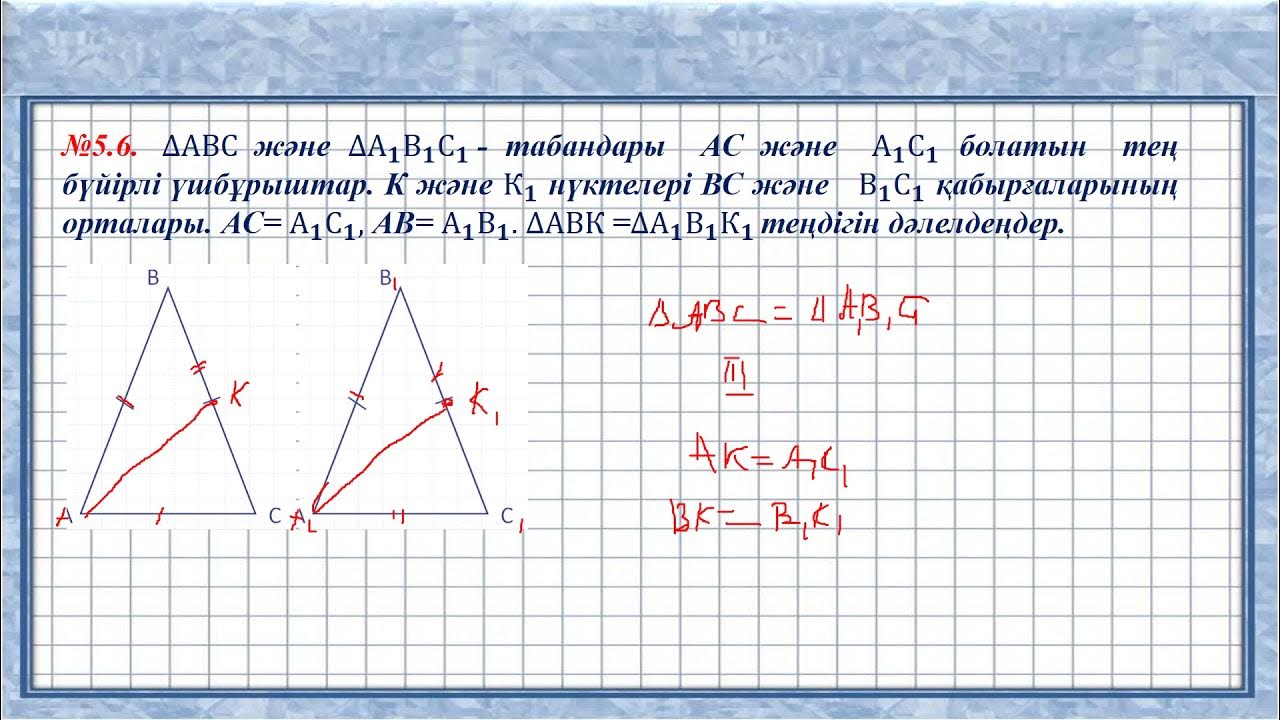 №5.6. ∆ABC және ∆A₁B₁C₁ - табандары AC және A₁C₁ болатын тең
бүйірлі үшбұрыштар. K және K₁ нүктелері BC және B₁C₁ қабырғаларының
орталары. AC= A₁C₁, AB= A₁B₁. ∆ABK =∆A₁B₁K₁ теңдігін дәлелдеңдер.
B
B₁
∆ABC = ∆A₁B₁C₁
III
K
K₁
AK = A₁K₁
BK = B₁K₁
A
C
A₁
C₁